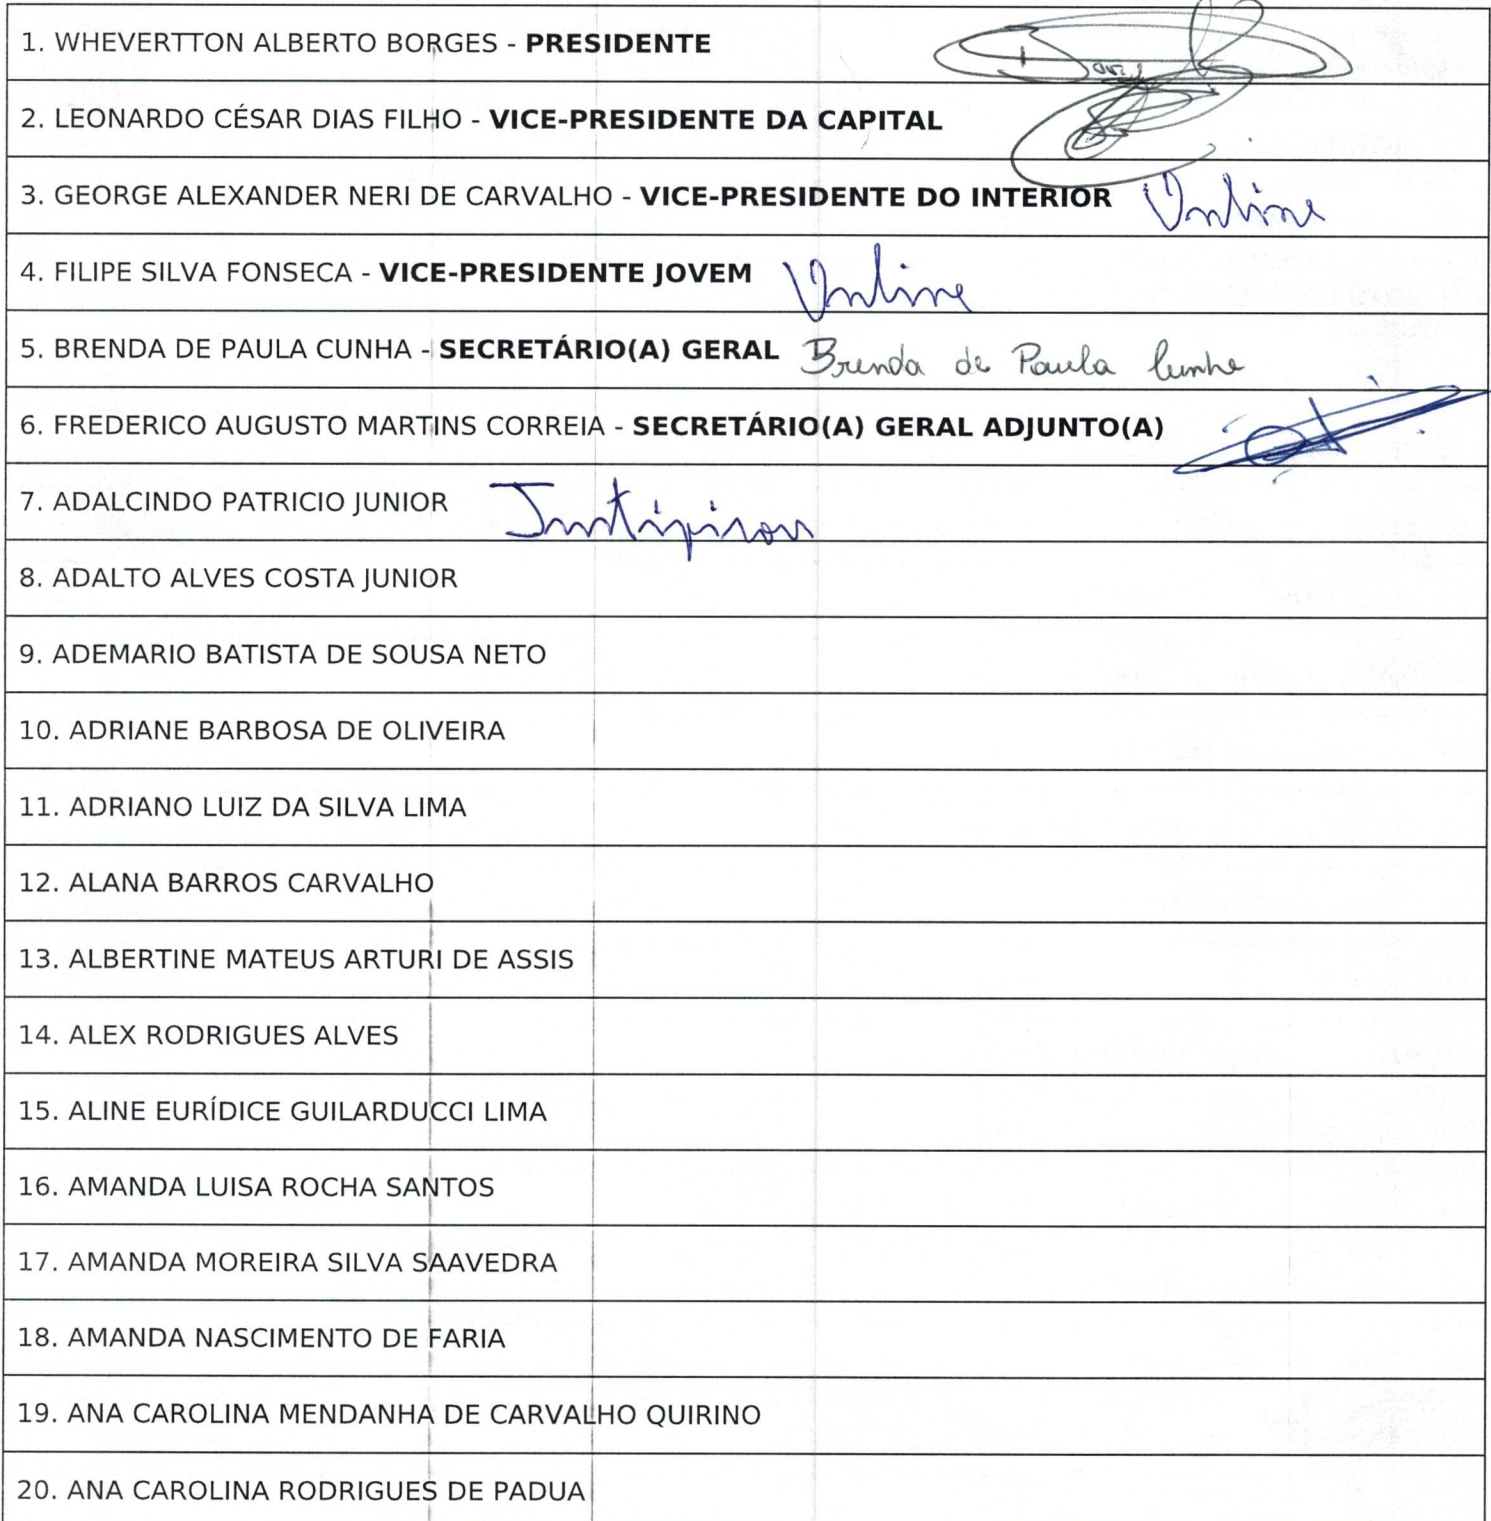 1. WHEVERTTON ALBERTO BORGES - PRESIDENTE
2. LEONARDO CÉSAR DIAS FILHO - VICE-PRESIDENTE DA CAPITAL
3. GEORGE ALEXANDER NERI DE CARVALHO - VICE-PRESIDENTE DO INTERIOR Online
4. FILIPE SILVA FONSECA - VICE-PRESIDENTE JOVEM Online
5. BRENDA DE PAULA CUNHA - SECRETÁRIO(A) GERAL Brenda de Paula Cunha
6. FREDERICO AUGUSTO MARTINS CORREIA - SECRETÁRIO(A) GERAL ADJUNTO(A)
7. ADALCINDO PATRICIO JUNIOR Justificou
8. ADALTO ALVES COSTA JUNIOR
9. ADEMARIO BATISTA DE SOUSA NETO
10. ADRIANE BARBOSA DE OLIVEIRA
11. ADRIANO LUIZ DA SILVA LIMA
12. ALANA BARROS CARVALHO
13. ALBERTINE MATEUS ARTURI DE ASSIS
14. ALEX RODRIGUES ALVES
15. ALINE EURÍDICE GUILARDUCCI LIMA
16. AMANDA LUISA ROCHA SANTOS
17. AMANDA MOREIRA SILVA SAAVEDRA
18. AMANDA NASCIMENTO DE FARIA
19. ANA CAROLINA MENDANHA DE CARVALHO QUIRINO
20. ANA CAROLINA RODRIGUES DE PADUA